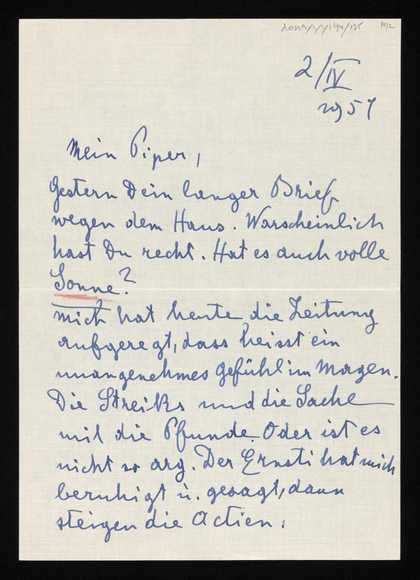 2/IV
1957
Mein Piper,
Gestern Dein langer Brief
wegen dem Haus. Warscheinlich
hast Du recht. Hat es auch volle
Sonne?
Mich hat heute die Zeitung
aufgeregt, dass heisst ein
unangenehmes Gefühl im Magen.
Die Streiks und die Sache
mit die Pfunde. Oder ist es
nicht so arg. Der Ernsti hat mich
beruhigt u. gesagt, dann
steigen die Actien.